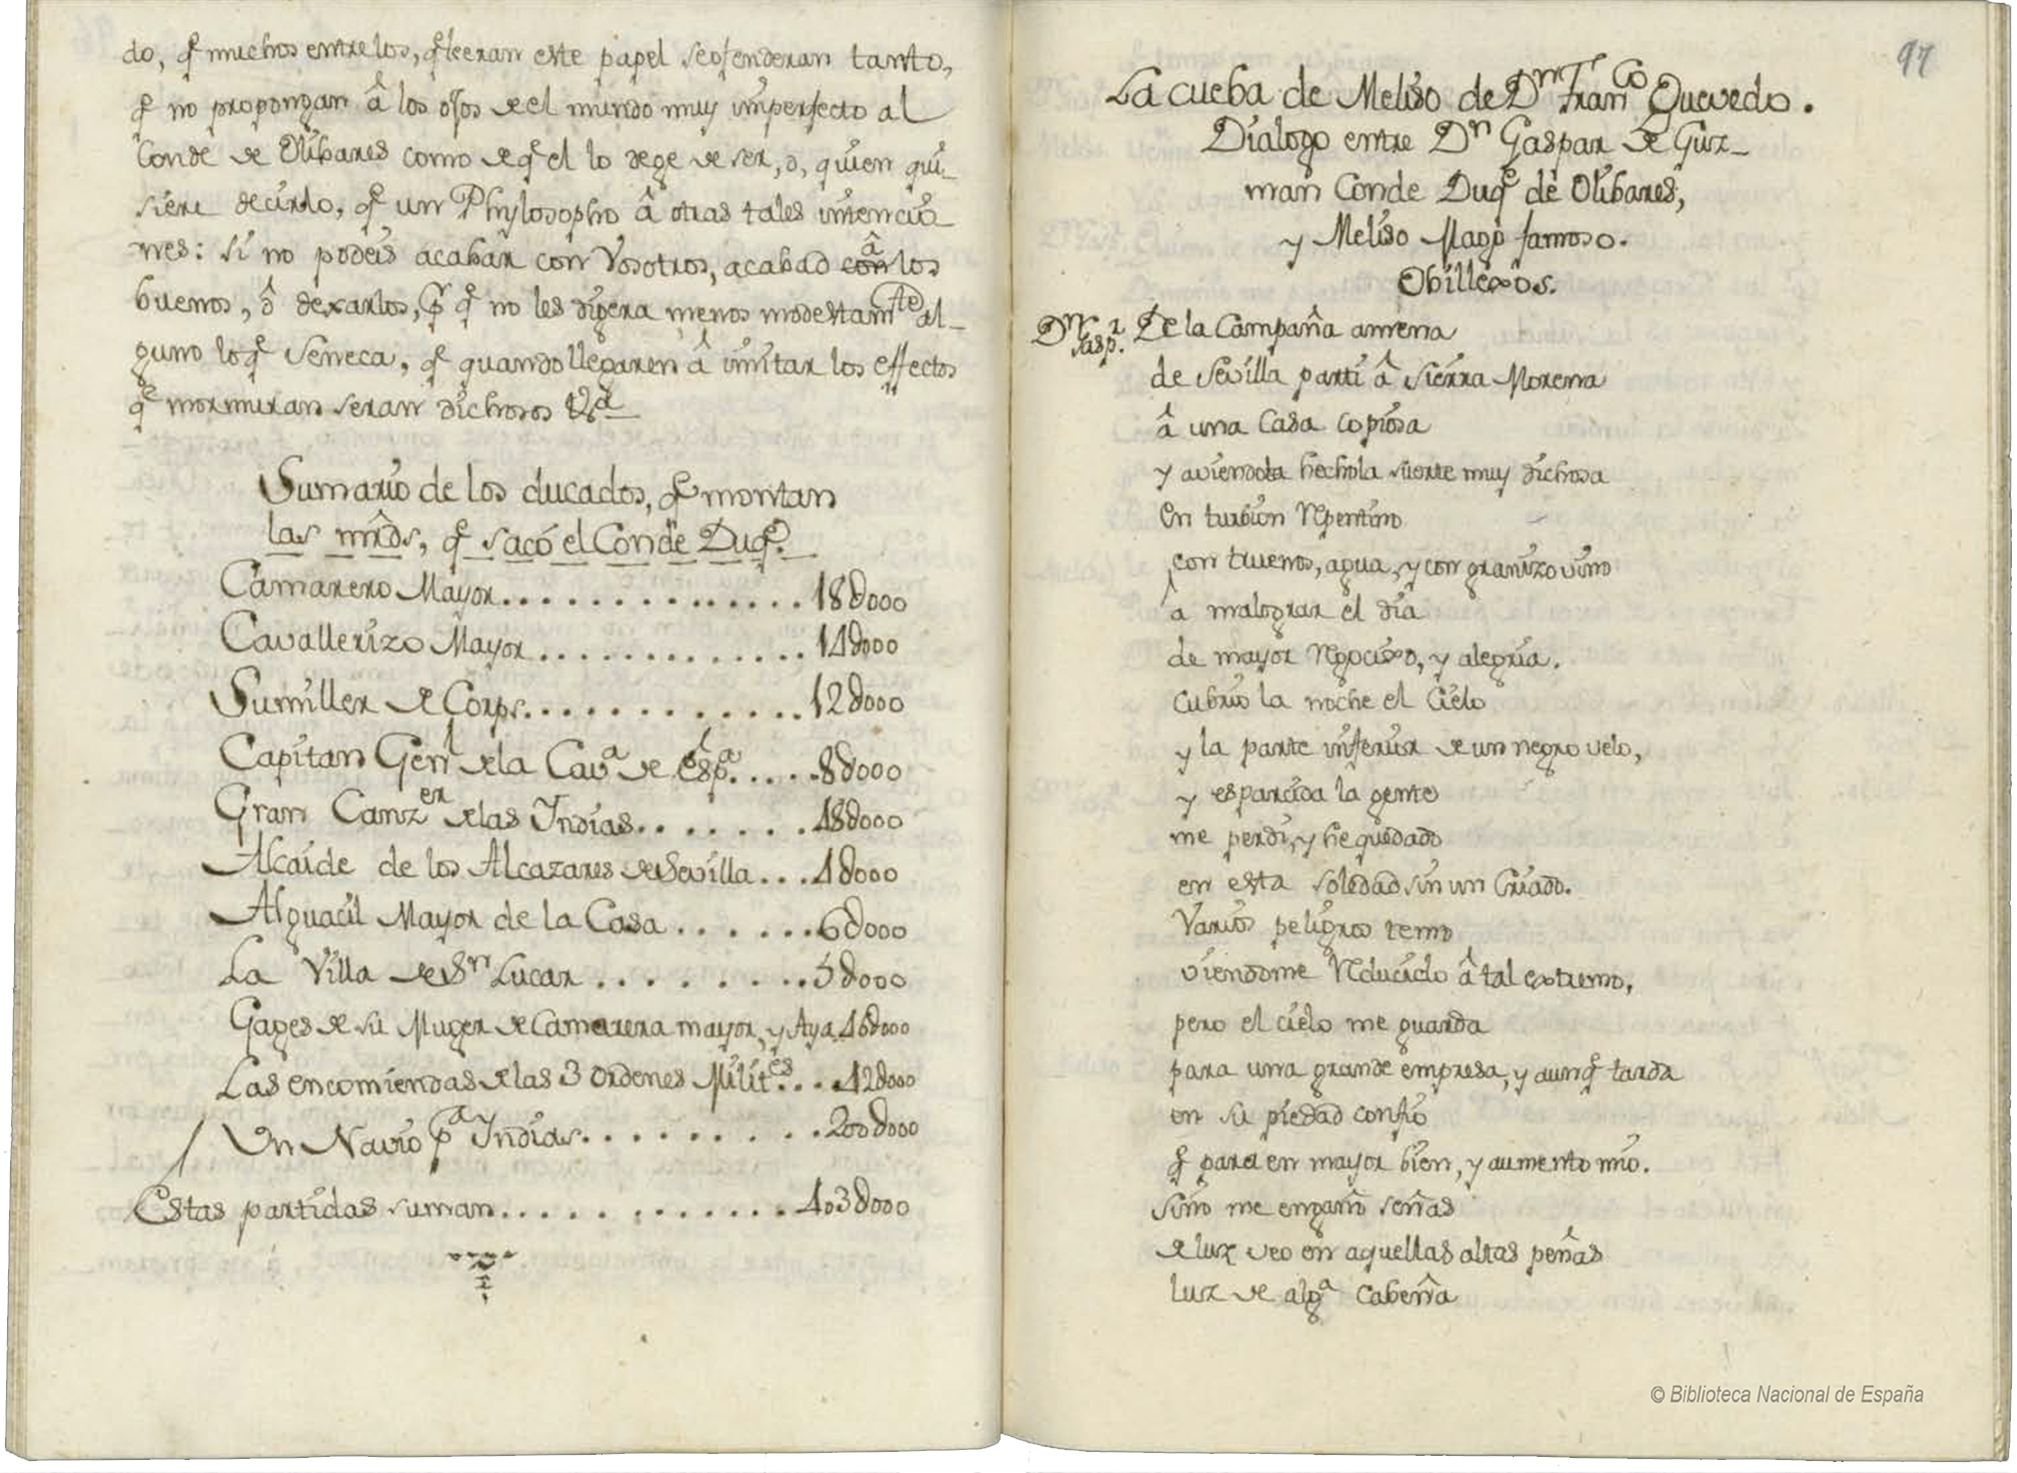 do, q̃ muchos entre los, q̃ leeran este papel se ofenderan tanto,
q̃ no propongan â los ojos de el mundo muy imperfecto al
Conde de Olibares como de q̃ el lo dege de ser, o, quien qui_
siere decirlo, q̃ un Phylosopho â otras tales intencio
nes: si no podeis acabar con Vosotros, acabad con â los
buenos, ô dexarlos, p̃ q̃ no les digera menos modestamte al_
guno loq̃ Seneca, q̃ quando llegaren â imitar los effectos
q̃ mormuran seran dichosos
Sumario de los ducados, q̃ montan
las mr̂ds, q̃ sacó el Conde Duq̃.
Camarero Mayor.............. 18Ꝺ000
Cavallerizo Mayor............. 14Ꝺ000
Sumiller de Corps............. 12Ꝺ000
Capitan Genl de la Cava de Espa...... 8Ꝺ000
Gran Canzer de las Indias........ 48Ꝺ000
Alcaide de los Alcazares de Sevilla... 4Ꝺ000
Alguacil Mayor de la Casa....... 6Ꝺ000
La Villa de Sn Lucar......... 5Ꝺ000
Gages de su Muger de Camarera mayor, y Aya. 46Ꝺ000
Las encomiendas de las 3 ordenes Milites.... 42Ꝺ000
Un Navio pa Indias.......... 200Ꝺ000
Estas partidas suman............. 403Ꝺ000
97
La cueba de Meliso de Dn Franco Quevedo.
Dialogo entre Dn Gaspar de Guz_
man Conde Duq̃ de Olibares,
y Meliso Mago famoso.
Obillexos.
Dn Gaspr. De la Campaña amena
de Sevilla parti â Sierra Morena
â una Casa copiosa
y aviendola hechola suerte muy dichosa
en turbion repentino
con truenos, agua, y con granizo vino
a malograr el dia
de mayor regocixo, y alegria.
cubrio la noche el Cielo
y la parte inferior de un negro velo,
y esparcida la gente
me perdi, y he quedado
en esta soledad sin un Criado.
Varios peligros temo
viendome reducido â tal extremo,
pero el cielo me guarda
para una grande empresa, y aunq̃ tarda
en su piedad confio
q̃ para en mayor bien, y aumento mio.
sino me engaño señas
de luz veo en aquellas altas peñas
luz de alga cabeña
© Biblioteca Nacional de España